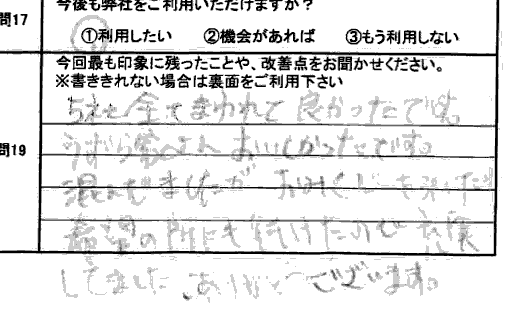 問17
今後も弊社をご利用いただけますか?
①利用したい ②機会があれば ③もう利用しない
今回最も印象に残ったことや、改善点をお聞かせください。
※書ききれない場合は裏面をご利用下さい
5社全てまわれて良かったです。
問19
おいしかったです。
混んでましたが
希望の所にも行けたので
してました ありがとうございます。